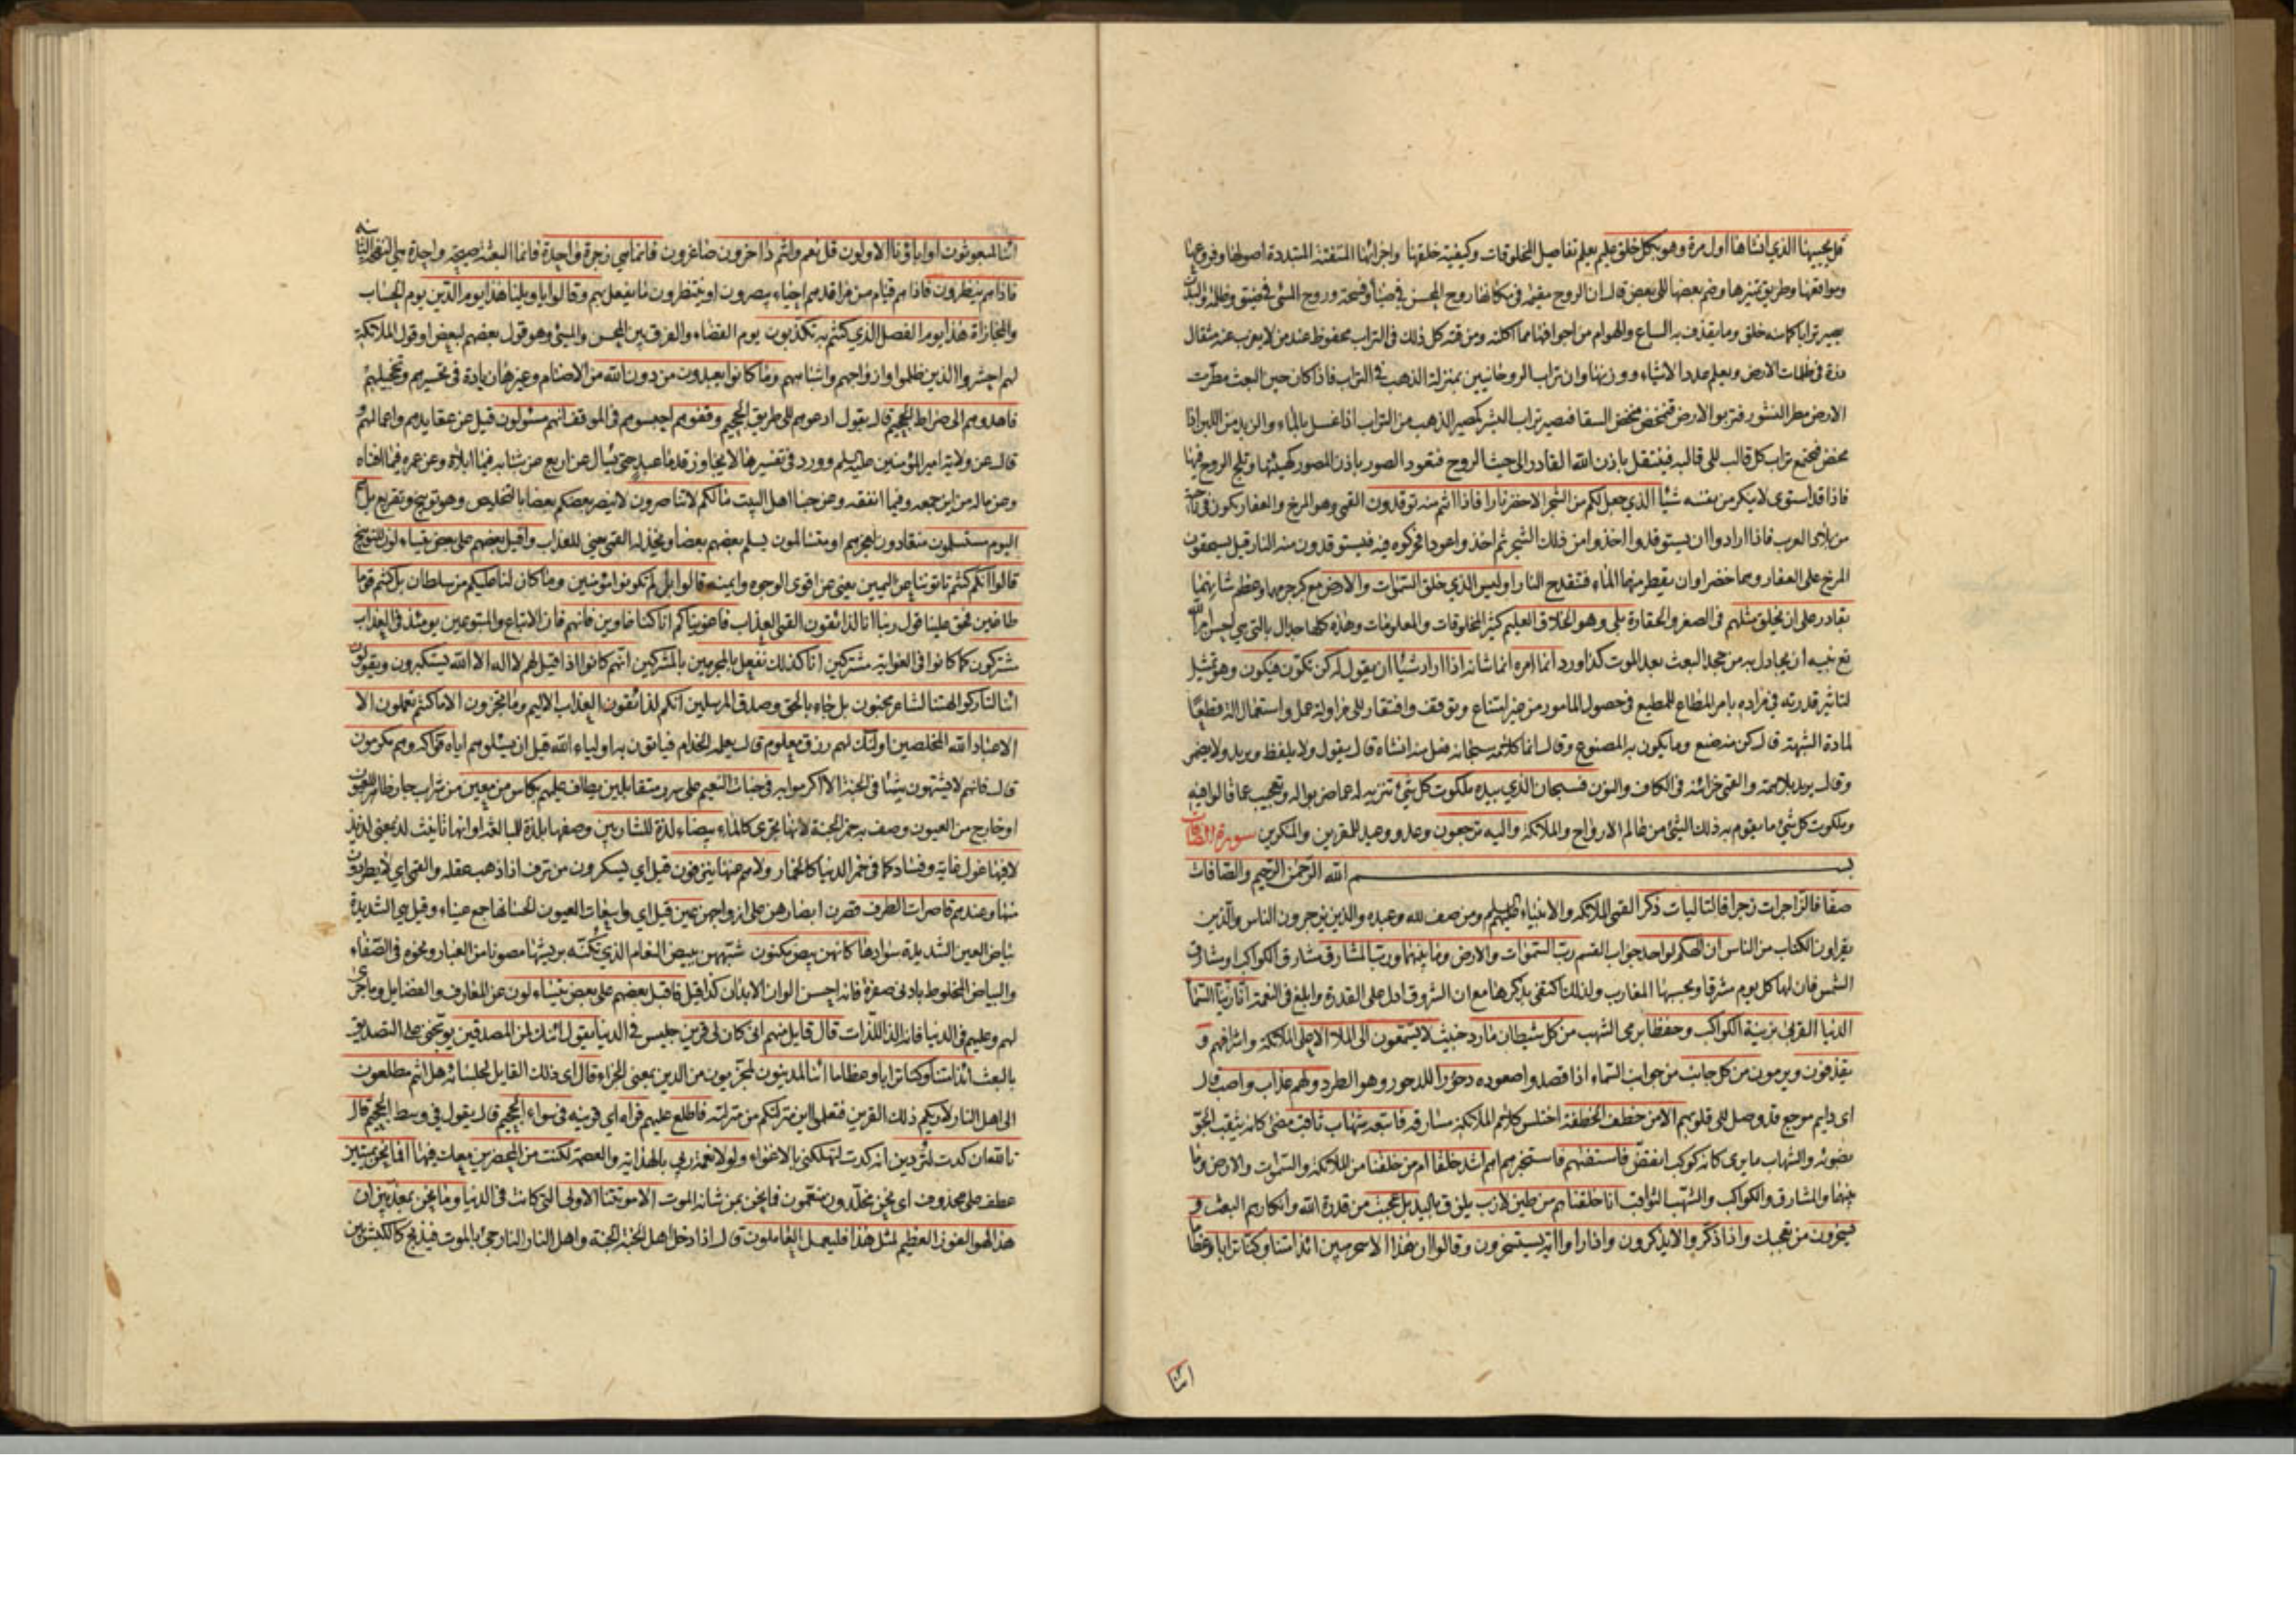 قل يحييها الذي انشاها اول مرة وهو بكل خلق عليم يعلم تفاصيل المخلوقات وكيفية خلقها واجزائها المتفتتة المتبددة اصولها وفروعها
ومواقعها وطريق تميزها وضم بعضها الى بعض قال ان الروح مقيمة في مكانها روح المحسن في ضياء وفسحة وروح المسئ في ضيق وظلمة والبدن
يصير ترابا كما منه خلق وما يقذف به السباع والهوام من اجوافها مما اكلته ومزقته كل ذلك في التراب محفوظ عند من لا يعزب عنه مثقال
ذرة في ظلمات الارض ويعلم عدد الاشياء ووزنها وان تراب الروحانيين بمنزلة الذهب في التراب فاذا كان حين البعث مطرت
الارض مطر النشور فتربو الارض فتمخض مخض السقا فتصير تراب البشر كمصير الذهب من التراب اذا غسل بالماء والزبد من اللبن اذا
مخض فيجتمع تراب كل قالب الى قالبه فينتقل باذن الله القادر الى حيث الروح فتعود الصور باذن المصور كهيئتها وتلج الروح فيها
فاذا قد استوى لا ينكر من نفسه شيئا الذي جعل لكم من الشجر الاخضر نارا فاذا انتم منه توقدون القمي وهو المرخ والعفار يكون في ناحية
من بلاد العرب فاذا ارادوا ان يستوقدوا اخذوا من ذلك الشجر ثم اخذوا عودا فحركوه فيه فيستوقدون منه النار قيل يسحقون
المرخ على العفار وهما خضراوان يقطر منهما الماء فتنقدح النار اوليس الذي خلق السموات والارض مع كبر جرمهما وعظم شانهما
بقادر على ان يخلق مثلهم في الصغر والحقارة بلى وهو الخلاق العليم كثير المخلوقات والمعلومات وهذه كلها جدال بالتي هي احسن امر الله
تع نبيه ان يجادل به من جحد البعث بعد الموت كذا ورد انما امره انما شانه اذا اراد شيئا ان يقول له كن تكون فيكون وهو تمثيل
لتاثير قدرته في مراده بامر المطاع للمطيع في حصول المامور من غير امتناع وتوقف وافتقار الى مزاولة عمل واستعمال الة قطعا
لمادة الشبهة قال كن منه صنع وما يكون به المصنوع وقال انما كلامه سبحانه فعل منه انشاه قال يقول ولا يلفظ ويريد ولا يضمر
وقال يريد بلا همة والقمي خزائنه في الكاف والنون فسبحان الذي بيده ملكوت كل شئ تنزيه له عما ضربوا له وتعجيب عما قالوا فيه
وملكوت كل شئ ما يقوم به ذلك الشئ من عالم الارواح والملائكة واليه ترجعون وعد ووعيد للمقرين والمنكرين سورة الصافات
بسم الله الرحمن الرحيم والصافات
صفا فالزاجرات زجرا فالتاليات ذكرا القمي الملائكة والانبياء عليهم السلم ومن صف لله وعبده والذين يزجرون الناس والذين
يقراون الكتاب من الناس ان الهكم لواحد جواب القسم رب السموات والارض وما بينهما ورب المشارق مشارق الكواكب ومشارق
الشمس فان لها كل يوم مشرقا وبحسبها المغارب ولذلك اكتفى بذكرها مع ان الشروق ادل على القدرة وابلغ في النعمة انا زينا السماء
الدنيا القربى بزينة الكواكب وحفظا برمي الشهب من كل شيطان مارد خبيث لا يسمعون الى الملا الاعلى الملائكة واشرافهم و
يقذفون ويرمون من كل جانب من جوانب السماء اذا قصدوا صعوده دحورا للدحور وهو الطرد ولهم عذاب واصب قال
اى دايم موجع قد وصل الى قلوبهم الا من خطف الخطفة اختلس كلام الملائكة مسارقة فاتبعه شهاب ثاقب مضئ كانه يثقب الجو
بضوئه والشهاب ما يرى كانه كوكب انقض فاستفتهم فاستخبرهم اهم اشد خلقا ام من خلقنا من الملائكة والسموات والارض وما
بينهما والمشارق والكواكب والشهب الثواقب انا خلقناهم من طين لازب يلزق باليد بل عجبت من قدرة الله وانكارهم البعث و
يسخرون من تعجبك واذا ذكروا لا يذكرون واذا راوا اية يستسخرون وقالوا ان هذا الا سحر مبين ائذا متنا وكنا ترابا وعظاما
ائنا
ائنا لمبعوثون اواباؤنا الاولون قل نعم وانتم داخرون صاغرون فانما هي زجرة واحدة فانما البعثة صيحة واحدة هي النفخة الثانية
فاذا هم ينظرون فاذا هم قيام من مراقدهم احياء يبصرون او ينتظرون ما يفعل بهم وقالوا يا ويلنا هذا يوم الدين يوم الحساب
والمجازاة هذا يوم الفصل الذي كنتم به تكذبون يوم القضاء والفرق بين المحسن والمسئ وهو قول بعضهم لبعض او قول الملائكة
لهم احشروا الذين ظلموا وازواجهم واشباههم وما كانوا يعبدون من دون الله من الاصنام وغيرها زيادة في تحسيرهم وتخجيلهم
فاهدوهم الى صراط الجحيم قال يقول ادعوهم الى طريق الجحيم وقفوهم احبسوهم في الموقف انهم مسئولون قيل عن عقايدهم واعمالهم و
قال عن ولاية امير المؤمنين عليه السلم وورد في تفسيرها لا يجاوز قدما عبد حتى يسال عن اربع عن شبابه فيما ابلاه وعن عمره فيما افناه
وعن ماله من اين جمعه وفيما انفقه وعن حبنا اهل البيت مالكم لا تناصرون لا ينصر بعضكم بعضا بالتخليص وهو توبيخ وتقريع بل هم
اليوم مستسلمون منقادون لعجزهم او متسالمون يسلم بعضهم بعضا ويخذله القمي يعني للعذاب واقبل بعضهم على بعض يتساءلون للتوبيخ
قالوا انكم كنتم تاتوننا عن اليمين يعني عن اقوى الوجوه وايمنه قالوا بل لم تكونوا مؤمنين وما كان لنا عليكم من سلطان بل كنتم قوما
طاغين فحق علينا قول ربنا انا لذائقون القمي العذاب فاغويناكم انا كنا غاوين فانهم فان الاتباع والمتبوعين يومئذ في العذاب
مشتركون كما كانوا في الغواية مشتركين انا كذلك نفعل بالمجرمين بالمشركين انهم كانوا اذا قيل لهم لا اله الا الله يستكبرون ويقولون
ائنا لتاركوا الهتنا لشاعر مجنون بل جاء بالحق وصدق المرسلين انكم لذائقون العذاب الاليم وما تجزون الا ما كنتم تعملون الا
الا عباد الله المخلصين اولئك لهم رزق معلوم قال يعلمه الخدام فياتون به اولياء الله قبل ان يسئلوهم اياه فواكه وهم مكرمون
قال فانهم لا يشتهون شيئا في الجنة الا اكرموا به في جنات النعيم على سرر متقابلين يطاف عليهم بكاس من معين من شراب جار ظاهر للعيون
او خارج من العيون وصف به خمر الجنة لانها تجري كالماء بيضاء لذة للشاربين وصفها بلذة للمبالغة او انها تانيث لذ بمعنى لذيذ
لا فيها غول غايلة وفساد كما في خمر الدنيا كالخمار ولا هم عنها ينزفون قيل اي يسكرون من نزف اذا ذهب عقله والقمي اي لا يطردون
منها وعندهم قاصرات الطرف قصرن ابصارهن على ازواجهن عين قيل اي واسعات العيون لحسانها جمع عيناء وقيل هي الشديدة
بياض العين الشديدة سوادها كانهن بيض مكنون شبههن ببيض النعام الذي تكنه بريشها مصونا من الغبار ونحوه في الصفاء
والبياض المخلوط بادنى صفرة فانه احسن الوان الابدان كذا قيل فاقبل بعضهم على بعض يتساءلون عن المعارف والفضايل وما جرى
لهم وعليهم في الدنيا فانه الذ اللذات قال قايل منهم انى كان لى قرين جليس في الدنيا يقول ائنك لمن المصدقين يوبخنى على التصديق
بالبعث ائذا متنا وكنا ترابا وعظاما ائنا لمدينون لمجزيون من الدين بمعنى الجزاء قال اى ذلك القايل لجلسائه هل انتم مطلعون
الى اهل النار لاريكم ذلك القرين فتعلموا اين منزلتكم من منزلته فاطلع عليهم فراه اي قرينه في سواء الجحيم قال يقول في وسط الجحيم قال
تالله ان كدت لتردين انه كدت لتهلكني بالاغواء ولولا نعمة ربي بالهداية والعصمة لكنت من المحضرين معك فيها افما نحن بميتين
عطف على محذوف اى نحن مخلدون منعمون فما نحن بمن شانه الموت الا موتتنا الاولى التي كانت في الدنيا وما نحن بمعذبين ان
هذا لهو الفوز العظيم لمثل هذا فليعمل العاملون قال اذا دخل اهل الجنة الجنة واهل النار النار جئ بالموت فيذبح كالكبش بين